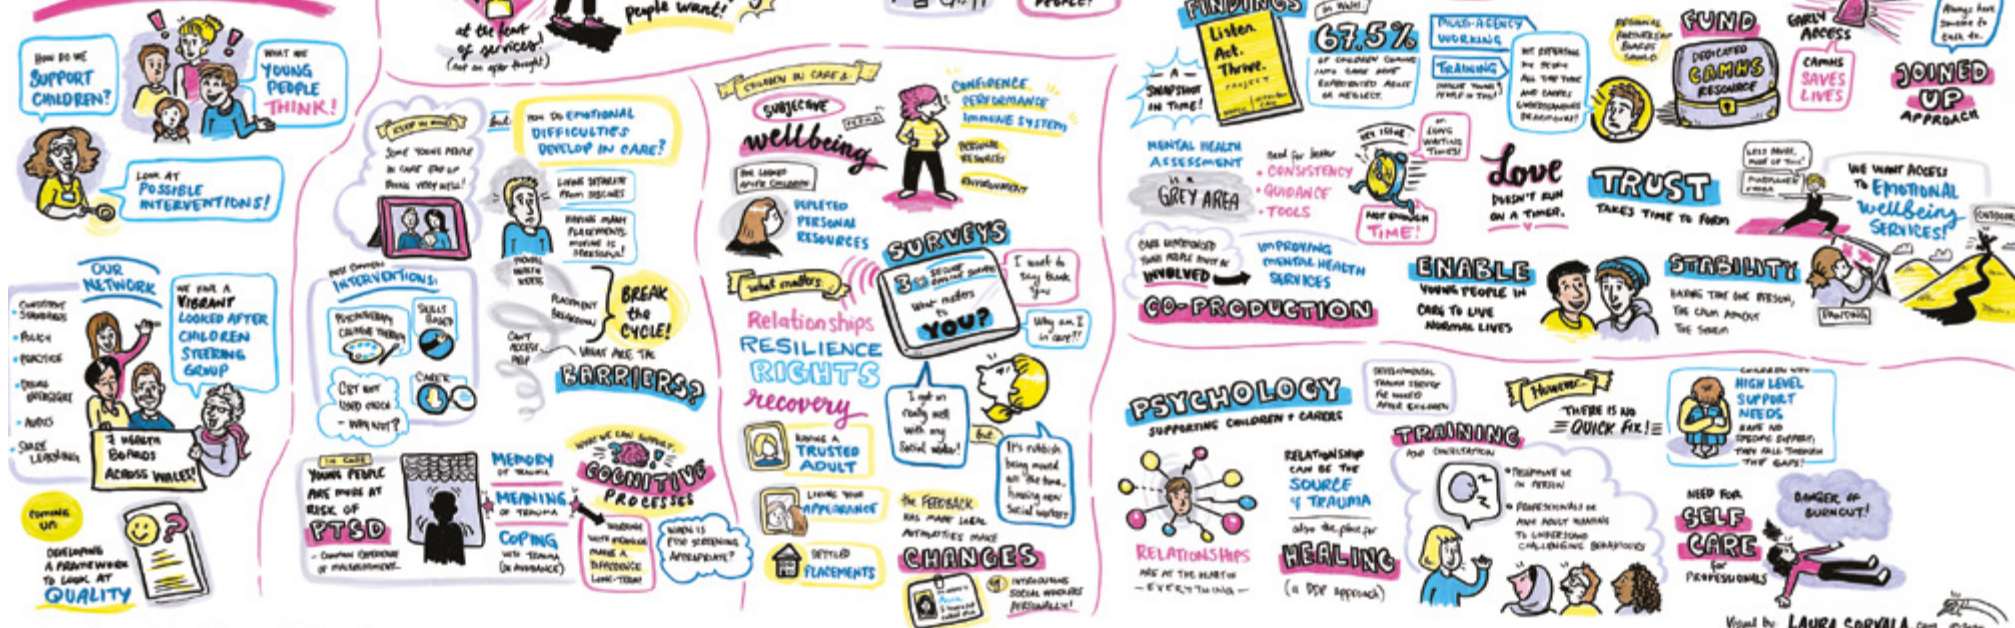 HOW DO WE
SUPPORT
CHILDREN?
WHAT WE
YOUNG
PEOPLE
THINK!
LOOK AT
POSSIBLE
INTERVENTIONS!
OUR
NETWORK
CONSISTENT
STANDARDS
POLICY
PRACTICE
AUDITS
SHARE
LEARNING
WE HAVE A
VIBRANT
LOOKED AFTER
CHILDREN
STEERING
GROUP
7 HEALTH
BOARDS
ACROSS WALES!
COMING
UP
DEVELOPING
A FRAMEWORK
TO LOOK AT
QUALITY
at the heart
of services!
(not an after thought)
people want!
KEEP IN MIND
SOME YOUNG PEOPLE
IN CARE END UP
DOING VERY WELL!
but
HOW DO EMOTIONAL
DIFFICULTIES
DEVELOP IN CARE?
LIVING SEPARATE
FROM SIBLINGS
HAVING MANY
PLACEMENTS
MOVING IS
STRESSFUL!
INTERVENTIONS:
PSYCHOTHERAPY
CREATIVE THERAPY
SKILLS
BASED
CARER
GET NOT
USED MUCH
- WHY NOT?
MENTAL
HEALTH
NEEDS
PLACEMENT
BREAKDOWN
CAN'T
ACCESS
HELP
BREAK
the
CYCLE!
WHAT ARE THE
BARRIERS?
IN CARE
YOUNG PEOPLE
ARE MORE AT
RISK OF
PTSD
- COMMON EXPERIENCE
OF MALTREATMENT.
MEMORY
OF TRAUMA
MEANING
OF TRAUMA
COPING
WITH TRAUMA
(OR AVOIDANCE)
WHAT WE CAN SUPPORT:
COGNITIVE
PROCESSES
WORKING
WITH MEMORIES
MAKE A
DIFFERENCE
LONG-TERM!
WHEN IS
PTSD SCREENING
APPROPRIATE?
CHILDREN IN CARE &
SUBJECTIVE
wellbeing
CONFIDENCE
PERFORMANCE
IMMUNE SYSTEM
PERSONAL
RESOURCES
ENVIRONMENT
FOR LOOKED
AFTER CHILDREN
DEPLETED
PERSONAL
RESOURCES
what matters:
Relationships
RESILIENCE
RIGHTS
recovery
HAVING A
TRUSTED
ADULT
LIKING YOUR
APPEARANCE
SETTLED
PLACEMENTS
SURVEYS
3
SECURE
ONLINE SURVEYS
What matters
to
YOU?
I want to
say thank
you
Why am I
in care??
I get on
really well
with my
Social worker!
but
It's rubbish
being moved
all the time,
having new
Social workers
the FEEDBACK
HAS MADE LOCAL
AUTHORITIES MAKE
CHANGES
INTRODUCING
SOCIAL WORKERS
PERSONALLY!
FINDINGS
- A -
SNAPSHOT
IN TIME!
Listen.
Act.
Thrive.
PROJECT
IN WALES
67.5%
OF CHILDREN COMING
INTO CARE HAVE
EXPERIENCED ABUSE
OR NEGLECT.
MULTI-AGENCY
WORKING
TRAINING
REGIONAL
PARTNERSHIP
BOARDS
SHOULD
FUND
DEDICATED
CAMHS
RESOURCE
EARLY
ACCESS
CAMHS
SAVES
LIVES
Always have
someone to
talk to.
JOINED
UP
APPROACH
MENTAL HEALTH
ASSESSMENT
is a
GREY AREA
need for better
• CONSISTENCY
• GUIDANCE
• TOOLS
KEY ISSUE
LONG
WAITING
TIMES!
NOT ENOUGH
TIME!
Love
DOESN'T RUN
ON A TIMER.
TRUST
TAKES TIME TO FORM
WE WANT ACCESS
TO EMOTIONAL
wellbeing
SERVICES!
OUTDOOR
CARE EXPERIENCED
YOUNG PEOPLE MUST BE
INVOLVED
IMPROVING
MENTAL HEALTH
SERVICES
CO-PRODUCTION
ENABLE
YOUNG PEOPLE IN
CARE TO LIVE
NORMAL LIVES
STABILITY
HAVING THAT ONE PERSON,
THE CALM AMIDST
THE STORM
PAINTING
PSYCHOLOGY
SUPPORTING CHILDREN + CARERS
DEVELOPMENTAL
TRAUMA SERVICE
FOR LOOKED
AFTER CHILDREN
RELATIONSHIPS
ARE AT THE HEART OF
- EVERYTHING -
RELATIONSHIP
CAN BE THE
SOURCE
of TRAUMA
also the place for
HEALING
(a DDP approach)
TRAINING
AND CONSULTATION
• TELEPHONE OR
IN PERSON
• PROFESSIONALS OR
ANY ADULT WANTING
TO UNDERSTAND
CHALLENGING BEHAVIOURS
However
THERE IS NO
QUICK FIX!
CHILDREN WITH
HIGH LEVEL
SUPPORT
NEEDS
HAVE NO
SPECIFIC SUPPORT,
THEY FALL THROUGH
THE GAPS!
NEED FOR
SELF
CARE
for
PROFESSIONALS
DANGER OF
BURNOUT!
Visual by LAURA SORVALA